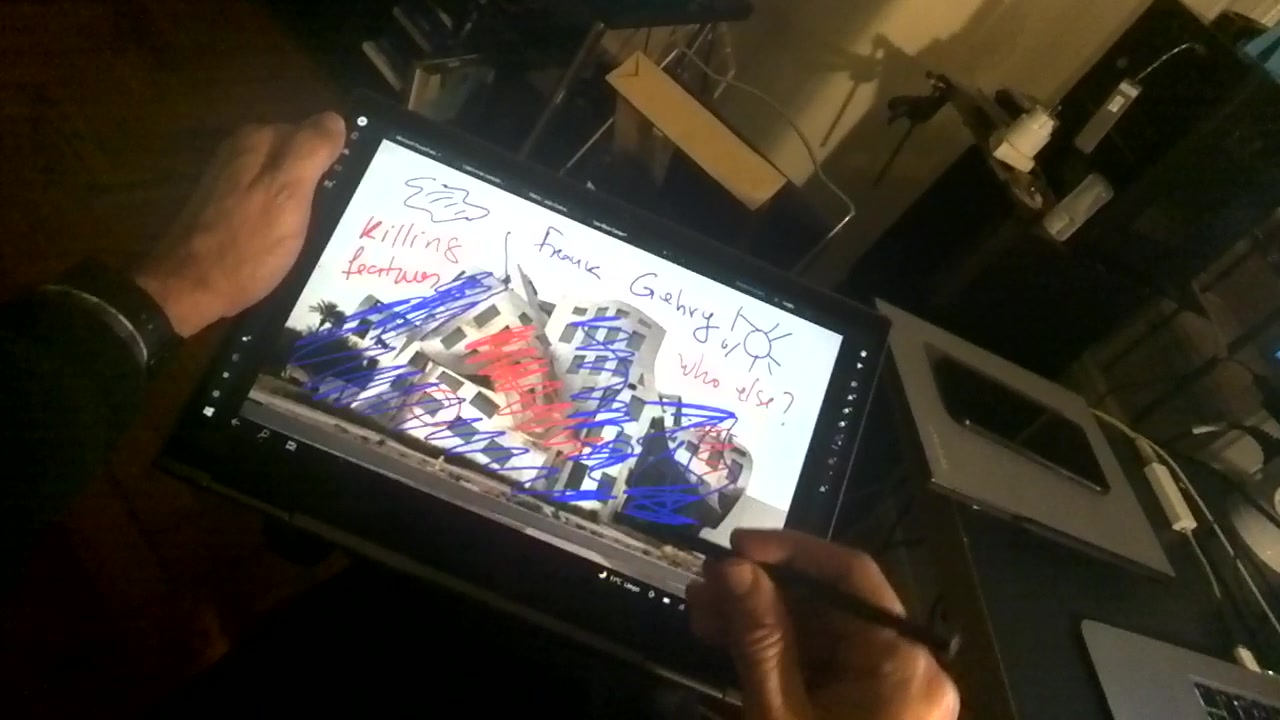 Killing
features
Frank Gehry
who else?
11°C